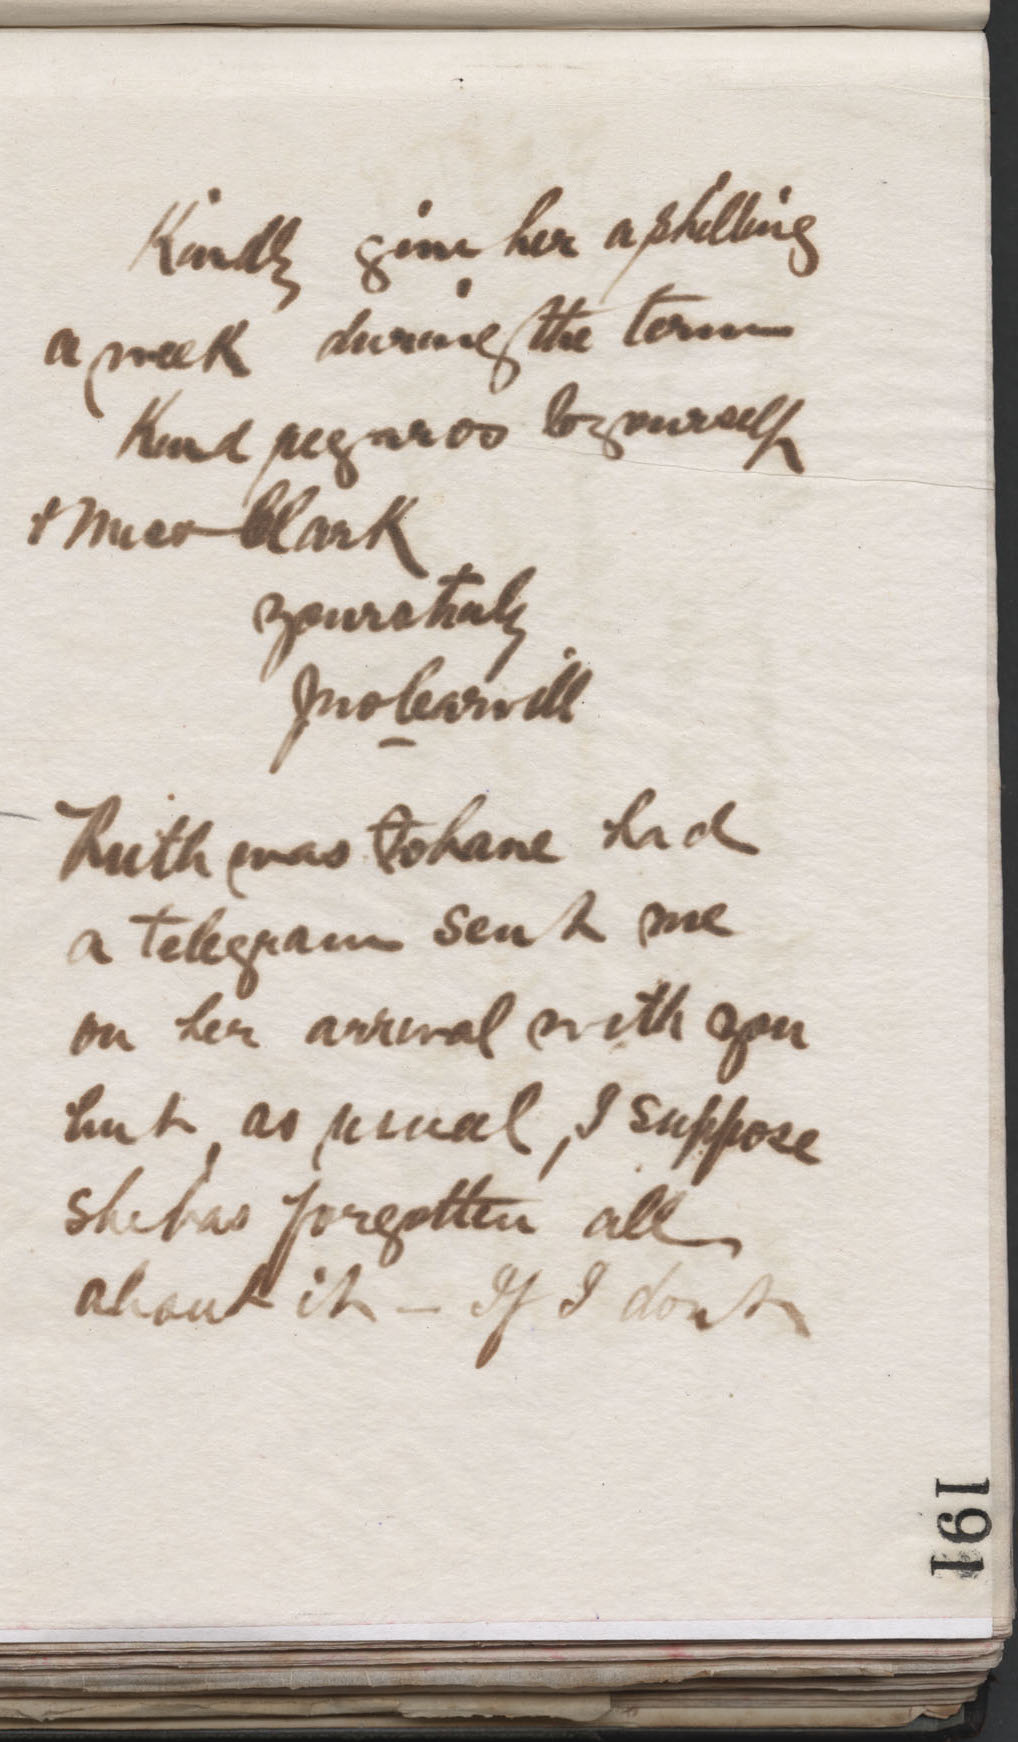 Kindly give her a shilling
a week during the term
Kind regards to yourself
& Miss Clark
yours truly
Jno Carvill
Ruth was to have had
a telegram sent me
on her arrival with you
but, as usual, I suppose
she has forgotten all
about it – If I dont
191